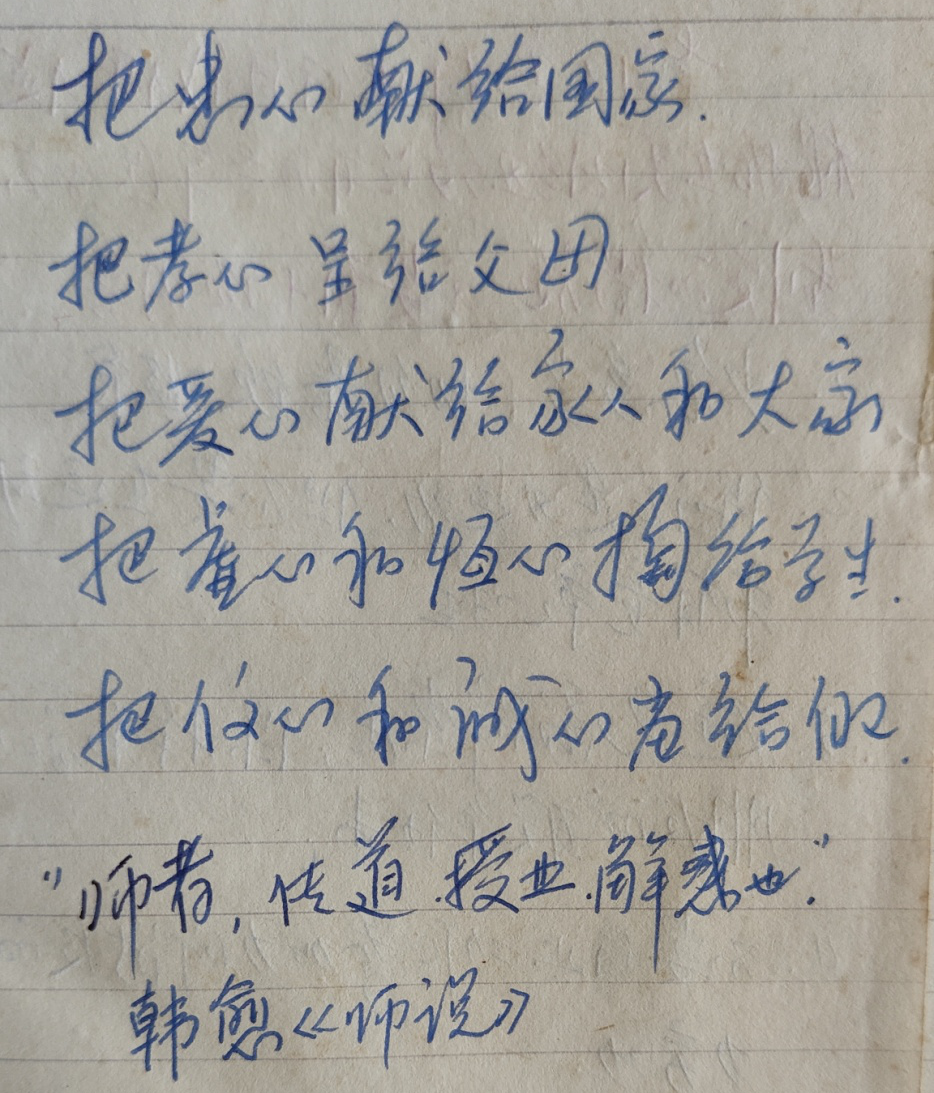 把忠心献给国家.
把孝心呈给父母
把爱心献给家人和大家
把童心和恒心掏给学生.
把信心和诚心给
"师者,传道.授业.解惑也".
韩愈《师说》